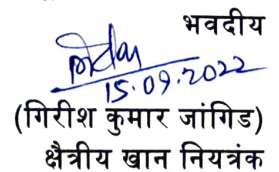 भवदीय
15.09.2022
(गिरीश कुमार जांगिड)
क्षैत्रीय खान नियत्रंक